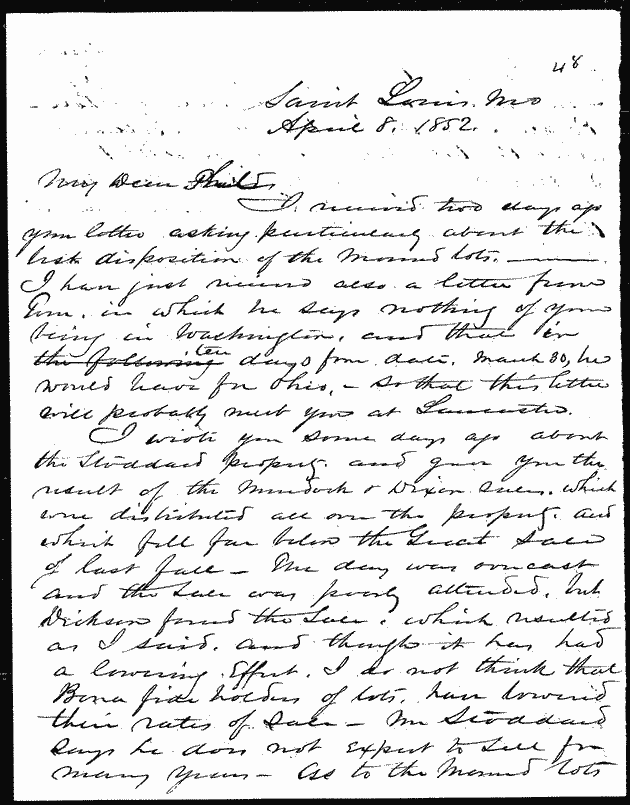 48
Saint Louis. Mo
April 8. 1852.
My Dear Phil.
I received two days ago
your letter asking particularly about the
last disposition of the Mound lots.
I have just received also a letter from
in which he says nothing of your
being in Washington. and that in
the following ten days from date. March 30, he
would leave for Ohio. - So that this letter
will probably meet you at Lancaster.
I wrote you some days ago about
the Stoddard property. and gave you the
result of the Murdoch & Dixon Sales. which
were distributed all over the property. and
which fell far below the Great Sale
of last fall - The day was overcast
and the Sale was poorly attended. but
Dickson forced the Sale. which resulted
as I said. and though it has had
a lowering Effect. I do not think that
Bona fide holders of lots. have lowered
their rates of Sale - Mr Stoddard
says he does not Expect to Sell for
many years - As to the Mound lots